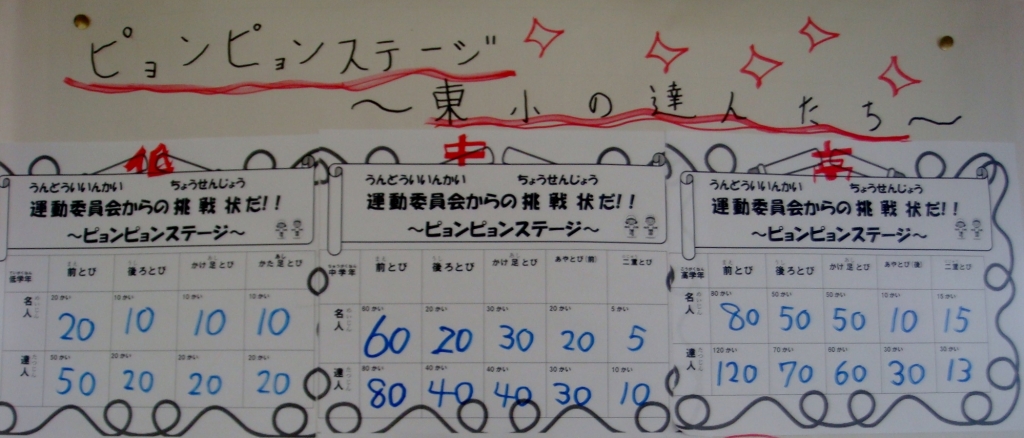 ピョンピョンステージ
～東小の達人たち～
低
うんどういいんかい ちょうせんじょう
運動委員会からの挑戦状だ!!
～ピョンピョンステージ～
低学年 前とび 後ろとび かけ足とび かた足とび
名人 20かい 10かい 10かい 10かい
20 10 10 10
達人 50かい 20かい 20かい 20かい
50 20 20 20
中
うんどういいんかい ちょうせんじょう
運動委員会からの挑戦状だ!!
～ピョンピョンステージ～
中学年 前とび 後ろとび かけ足とび あやとび(前) 二重とび
名人 60かい 20かい 30かい 20かい 5かい
60 20 30 20 5
達人 80かい 40かい 40かい 30かい 10かい
80 40 40 30 10
高
うんどういいんかい ちょうせんじょう
運動委員会からの挑戦状だ!!
～ピョンピョンステージ～
高学年 前とび 後ろとび かけ足とび あやとび(後) 二重とび
名人 80かい 50かい 50かい 10かい 15かい
80 50 50 10 15
達人 120かい 70かい 60かい 30かい 30かい
120 70 60 30 13